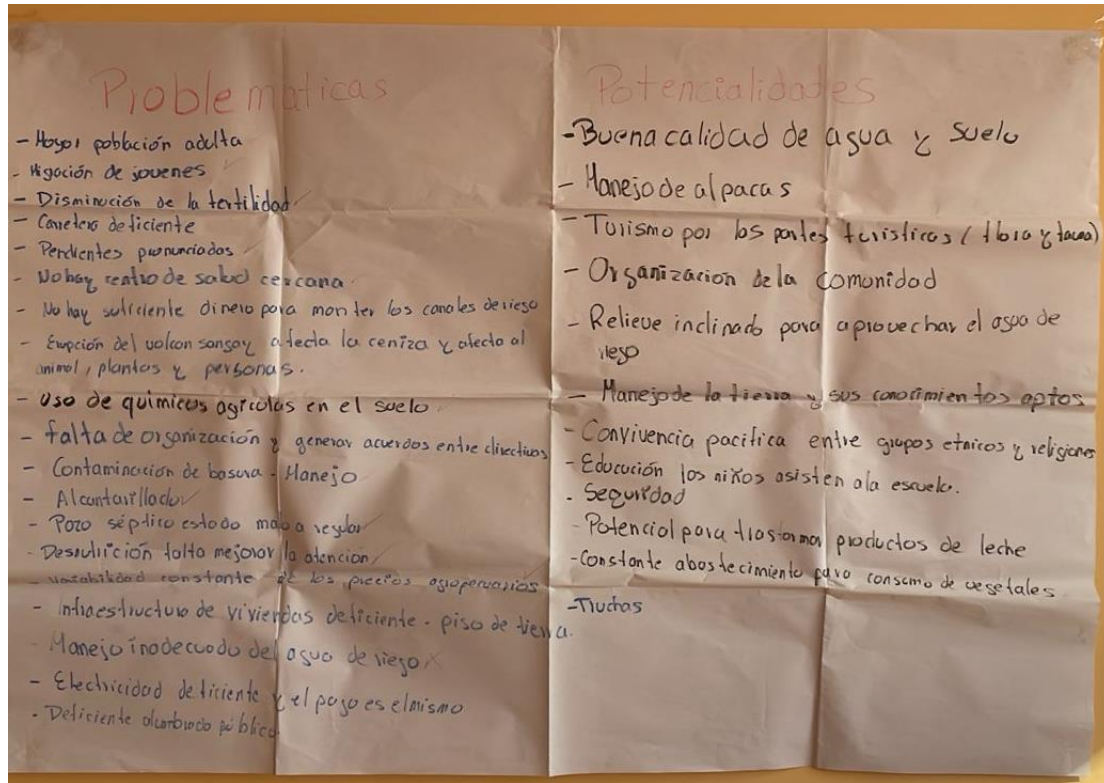 Problematicas
- Mayor población adulta
- Migación de jovenes
- Disminución de la fertilidad
- Carretera deficiente
- Pendientes pronunciadas
- No hay centro de salud cercana
- No hay suficiente dinero para monter los canales de riego
- Erupción del volcan sangay afecta la ceniza y afecta al
animal, plantas y personas.
- Uso de quimicos agricolas en el suelo.
- falta de organización y generar acuerdos entre directivos
- Contaminación de basura - Manejo
- Alcantarillado
- Pozo séptico estado malo a regular
- Desnutrición falta mejorar la atención
- constante de los precios agropecuarios
- Infraestructura de viviendas deficiente - piso de tierra.
- Manejo inadecuado del agua de riego
- Electricidad deficiente y el pago es el mismo
- Deficiente alumbrado público
Potencialidades
- Buena calidad de agua y suelo
- Manejo de alpacas
- Turismo por las partes turisticas (flora y fauna)
- Organizacion de la comunidad
- Relieve inclinado para aprovechar el agua de
riego
- Manejo de la tierra y sus conocimientos aptos
- Convivencia pacifica entre grupos etnicos y religiones
- Educación los niños asisten a la escuela.
- Seguridad
- Potencial para trasformar productos de leche
- Constante abastecimiento para consumo de vegetales.
- Truchas